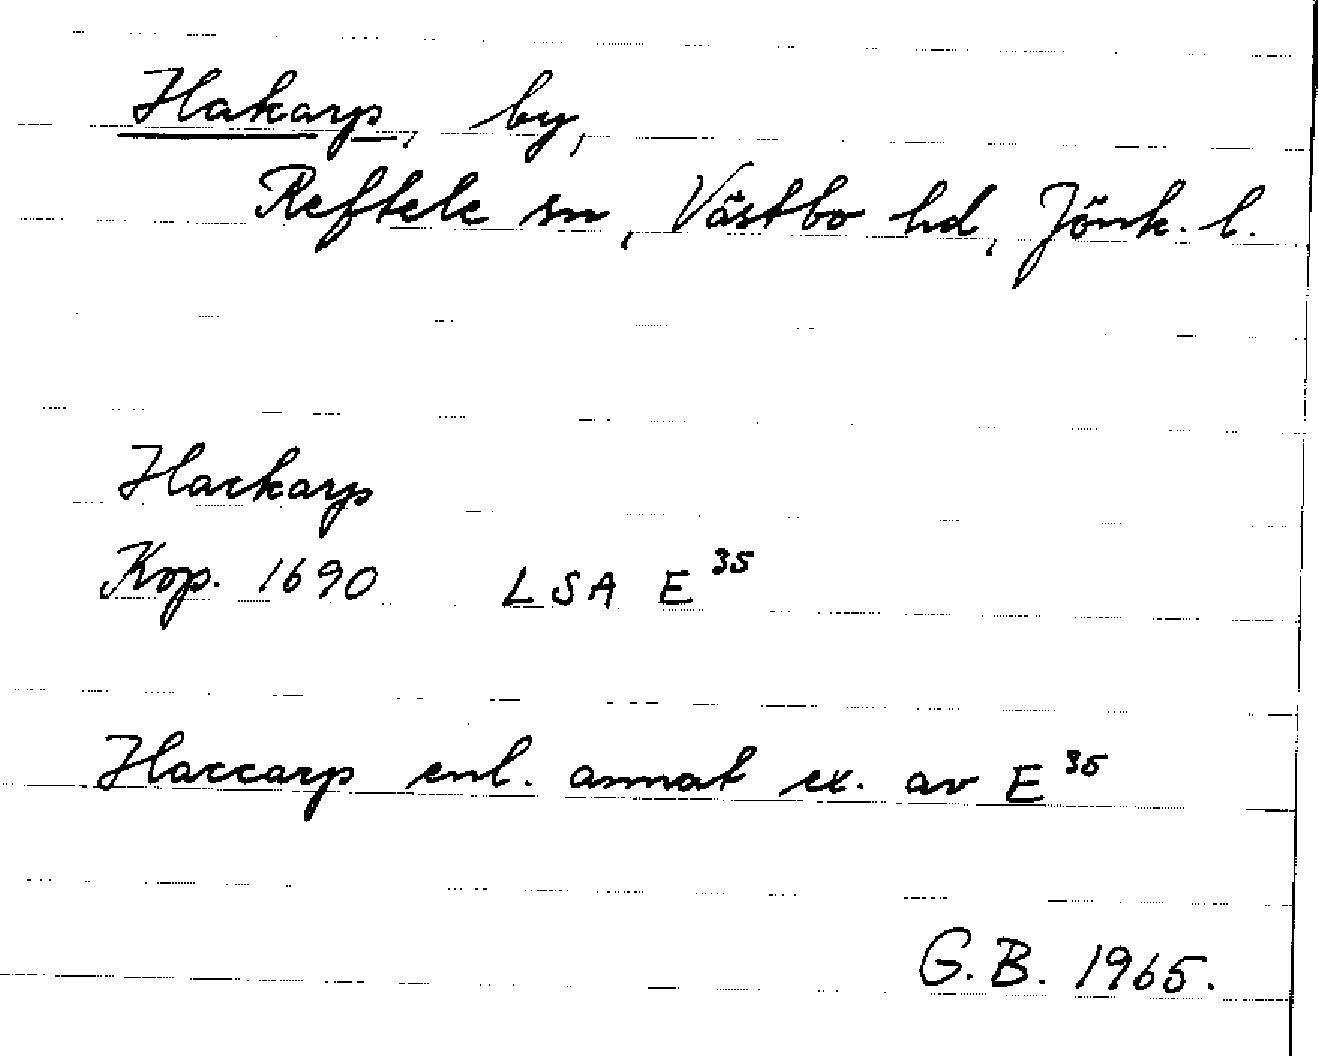 Hakarp, by,
Reftele sn, Västbo hd, Jönk. l.
Hackarp
Kop. 1690 LSA E 35
Haccarp enl. annat ex. av E 35
G.B. 1965.